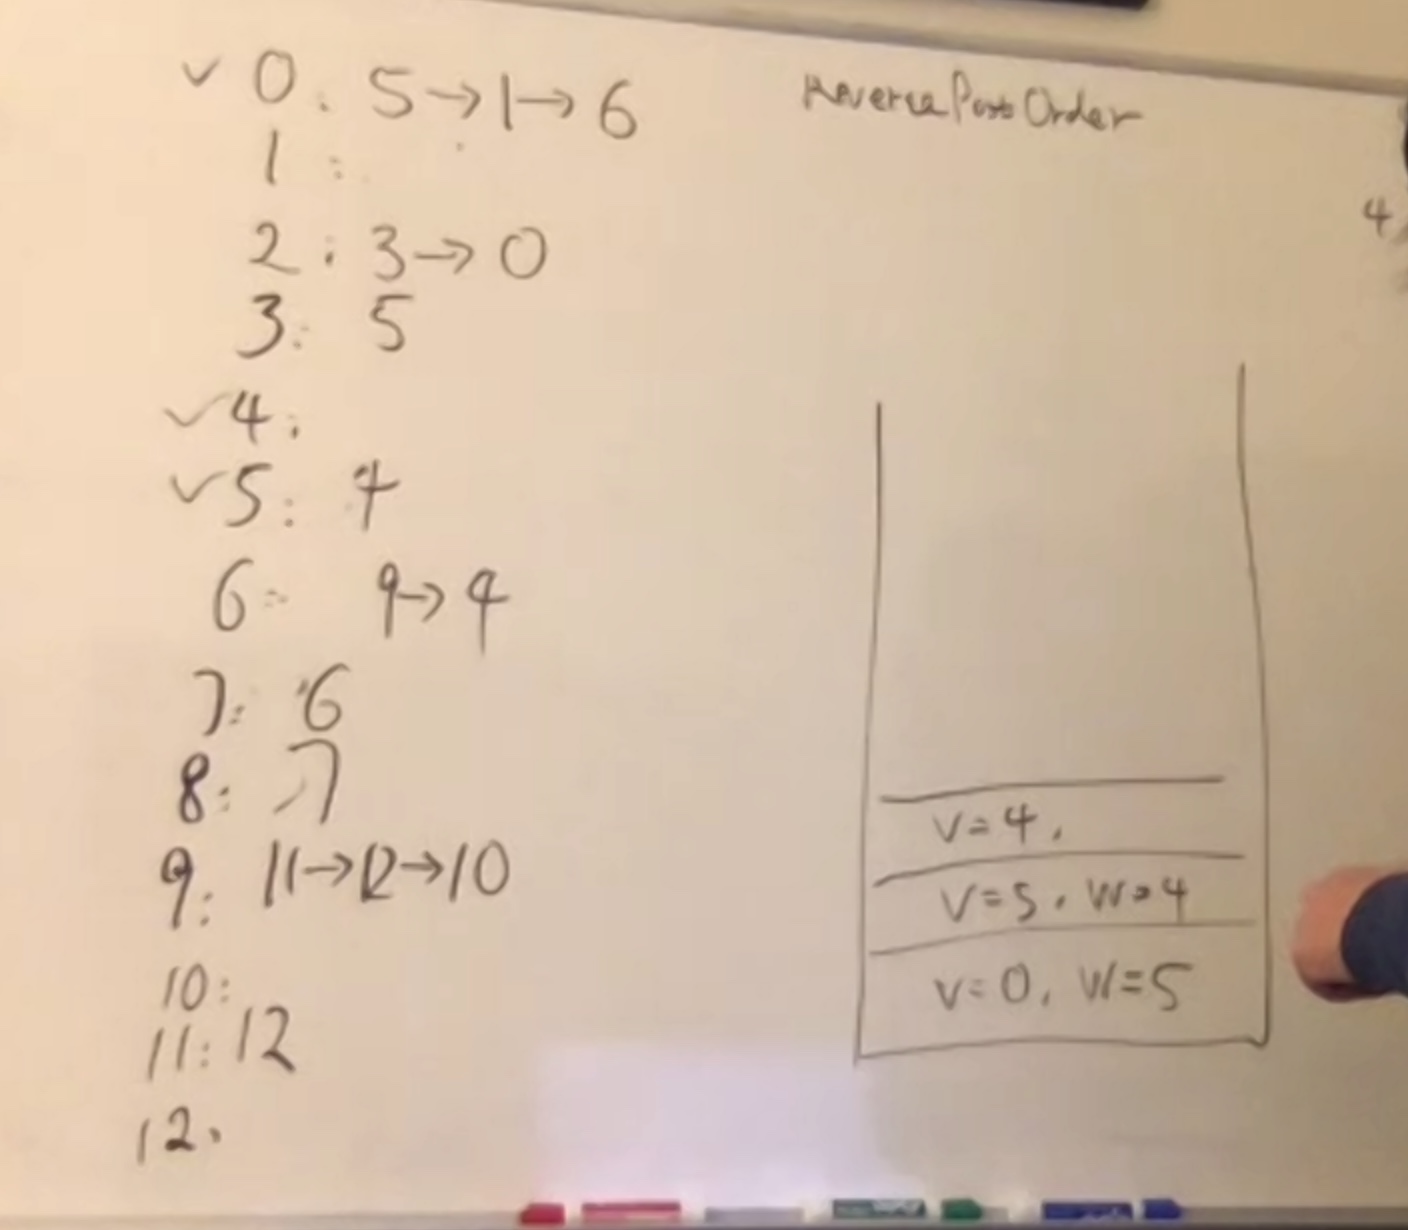 ✓ 0: 5→1→6
1:
2: 3→0
3: 5
✓ 4:
✓ 5: 4
6: 9→4
7: 6
8: 7
9: 11→12→10
10:
11: 12
12:
ReversePostOrder
4
V=4,
V=5, W=4
V=0, W=5